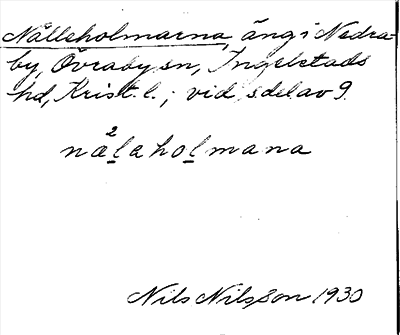 Nålleholmarna, äng i Nedra-
by, Övraby sn, Ingelstads
hd, Krist. l.; vid s delav 9.
næ²laholmana
Nils Nilsson 1930